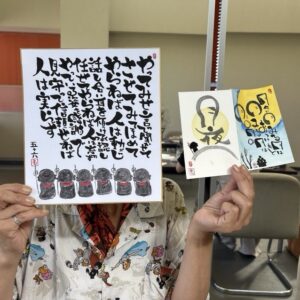 やってみせ言って聞かせて
させてみてほめて
やらねば人は動かじ
話し合い耳を傾け承認し
任せてやらねば人は育たず
やっている姿を感謝で
見守って信頼せねば
人は実らず
五十六
夜